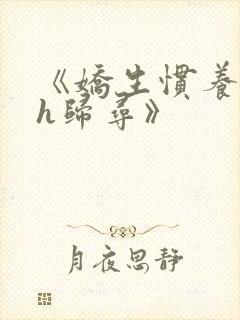 《嬌生慣養
h歸尋》
月夜思靜